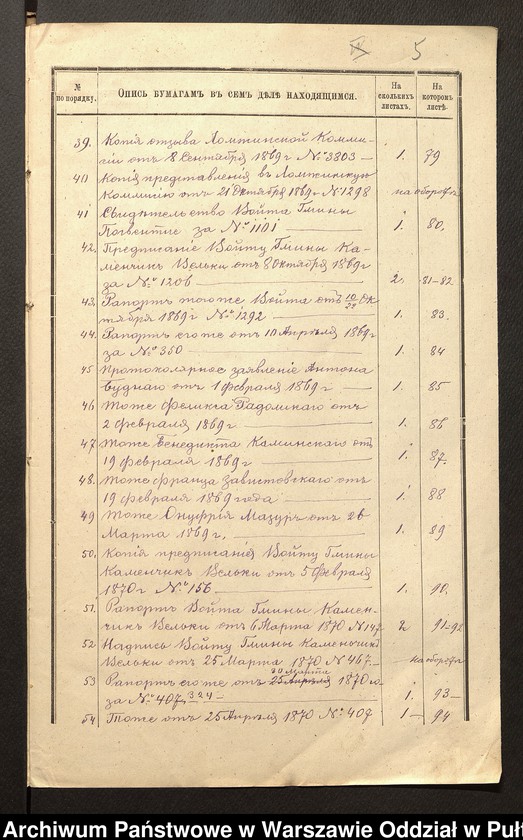 5
№ по порядку.
Опись бумагамъ въ семъ дѣлѣ находящимся.
На сколькихъ листахъ.
На которомъ листѣ.
39. Копія отзыва Ломжинской Комми-
сіи отъ 8 Сентября 1869 г № 3803 — 1. 79
40 Копія представленія въ Ломжинскую
Коммисію отъ 21 Октября 1869 г № 1298 на оборотѣ
41 Свидѣтельство Войта Гмины
за № 1101 — 1. 80.
42. Предписаніе Войту Гмины Ка-
менчикъ Вельки отъ 8 Октября 1869 г
за № 1206 — 2. 81-82
43. Рапортъ тогоже Войта отъ 10/22 Ок-
тября 1869 г № 1292 — 1. 83.
44. Рапортъ егоже отъ 10 Апрѣля 1869 г
за № 350 — 1. 84
45 Протоколярное заявленіе Антона
Буднаго отъ 1 февраля 1869 г — 1. 85
46 Тоже Феликса Радомскаго отъ
2 февраля 1869 г — 1. 86
47 Тоже Бенедикта Каминскаго отъ
19 февраля 1869 г — 1. 87.
48. Тоже Франца Завистовскаго отъ
19 февраля 1869 года — 1. 88
49 Тоже Онуфрія Мазуръ отъ 26
Марта 1869 г. — 1. 89
50. Копія предписанія Войту Гмины
Каменчикъ Вельки отъ 5 февраля
1870 г № 156 — 1. 90.
51. Рапортъ Войта Гмины Камен-
чикъ Вельки отъ 6 Марта 1870 № 147 2 91-92
52 Надпись Войту Гмины Каменчикъ
Вельки от 25 Марта 1870 № 467. — на оборотѣ
30 Марта
53 Рапортъ егоже отъ 25 Апрѣля 1870 го
за № 407 324 — 1. 93 —
54 Тоже отъ 25 Апрѣля 1870 № 407 1 — 94
Archiwum Państwowe w Warszawie Oddział w Puł